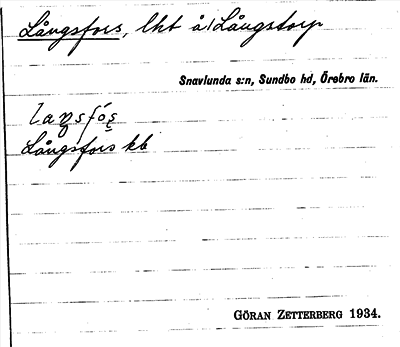 Långsfors, lht å Långstorp
Snavlunda s:n, Sundbo hd, Örebro län.
Långsfors kb
GÖRAN ZETTERBERG 1934.